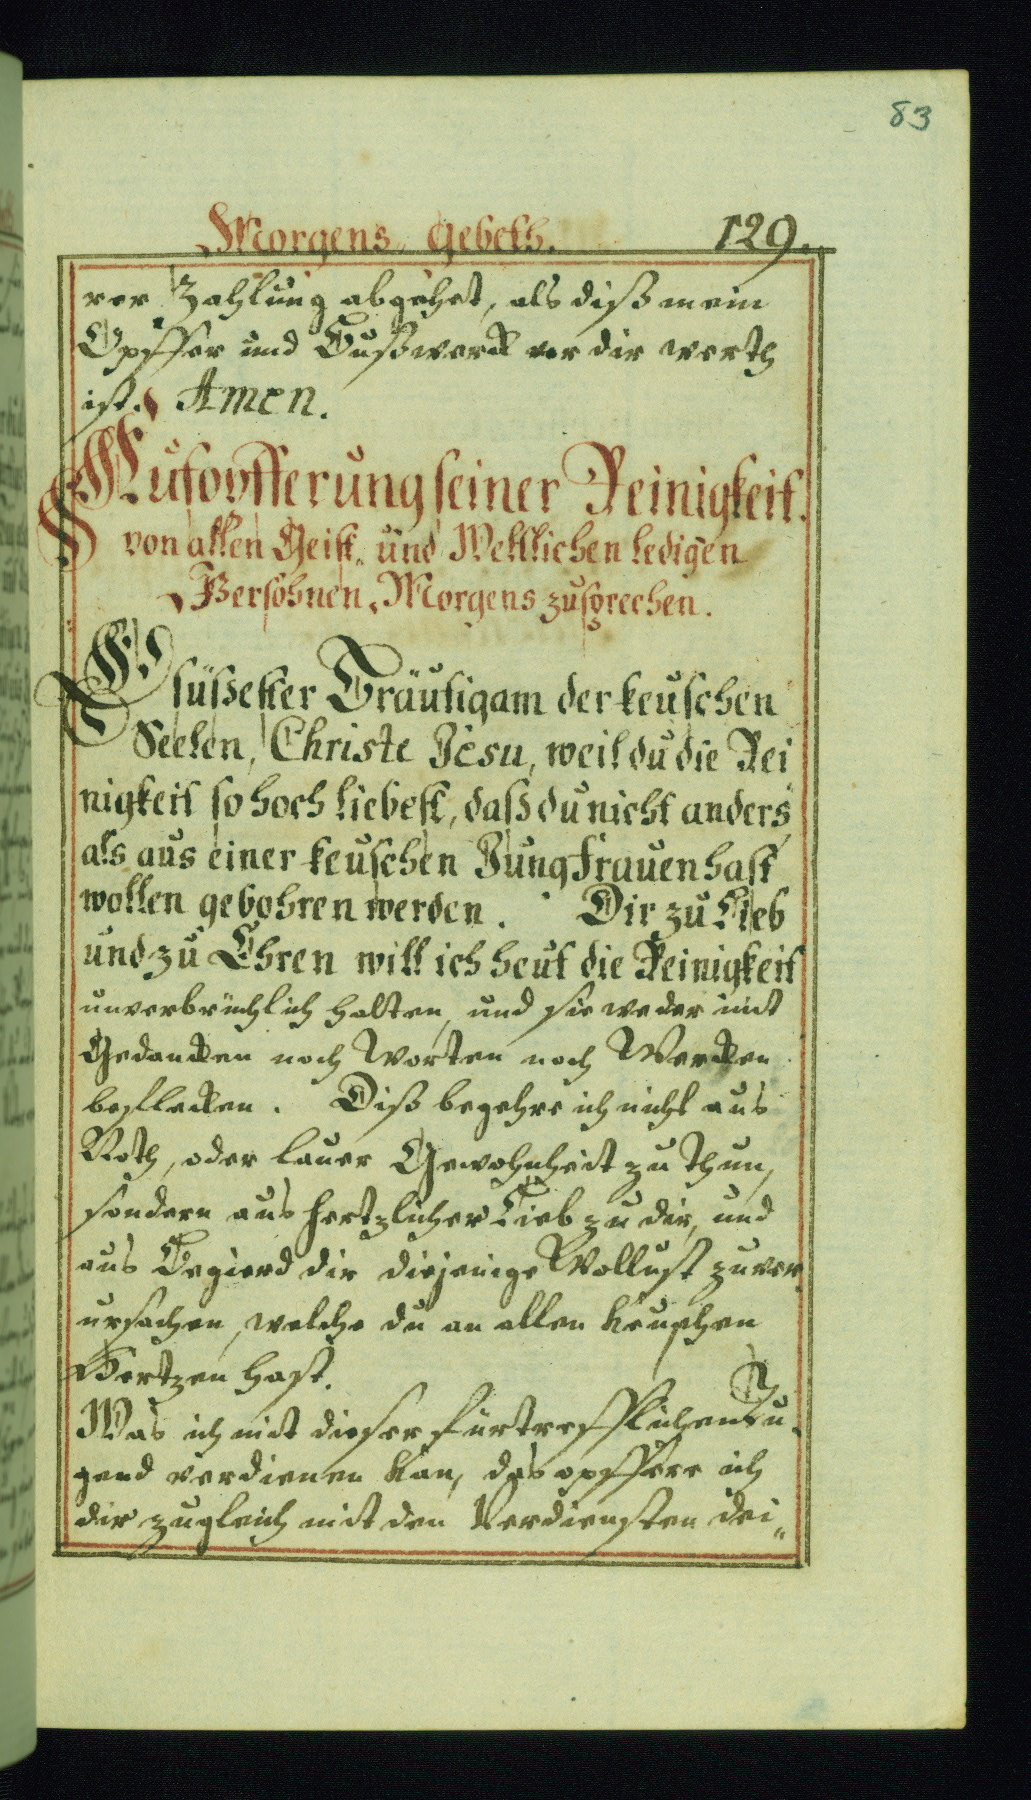 83
Morgens Gebeth. 129.
rer Zahlung abgehet, als diß mein
Opffer und Bußwerck vor dir werth
ist. Amen.
Aufopfferung seiner Reinigkeit.
von allen Geist- und Weltlichen ledigen
Persohnen, Morgens zusprechen.
O süßester Bräutigam der keuschen
Seelen, Christe Jesu, weil du die Rei
nigkeit so hoch liebest, daß du nicht anders
als aus einer keuschen Jungfrauen hast
wollen gebohren werden. Dir zu Lieb
und zu Ehren will ich heut die Reinigkeit
unverbrüchlich halten, und sie weder mit
Gedancken noch Worten noch Wercken
beflecken. Diß begehre ich nicht aus
Noth, oder lauer Gewohnheit zu thun,
sondern aus hertzlicher Lieb zu dir, und
aus Begierd dir diejenige Wollust zu ver
ursachen, welche du an allen keuschen
Hertzen hast.
Was ich mit dieser fürtrefflichen Tu
gend verdienen kan, das opffere ich
dir zugleich mit den Verdiensten dei„